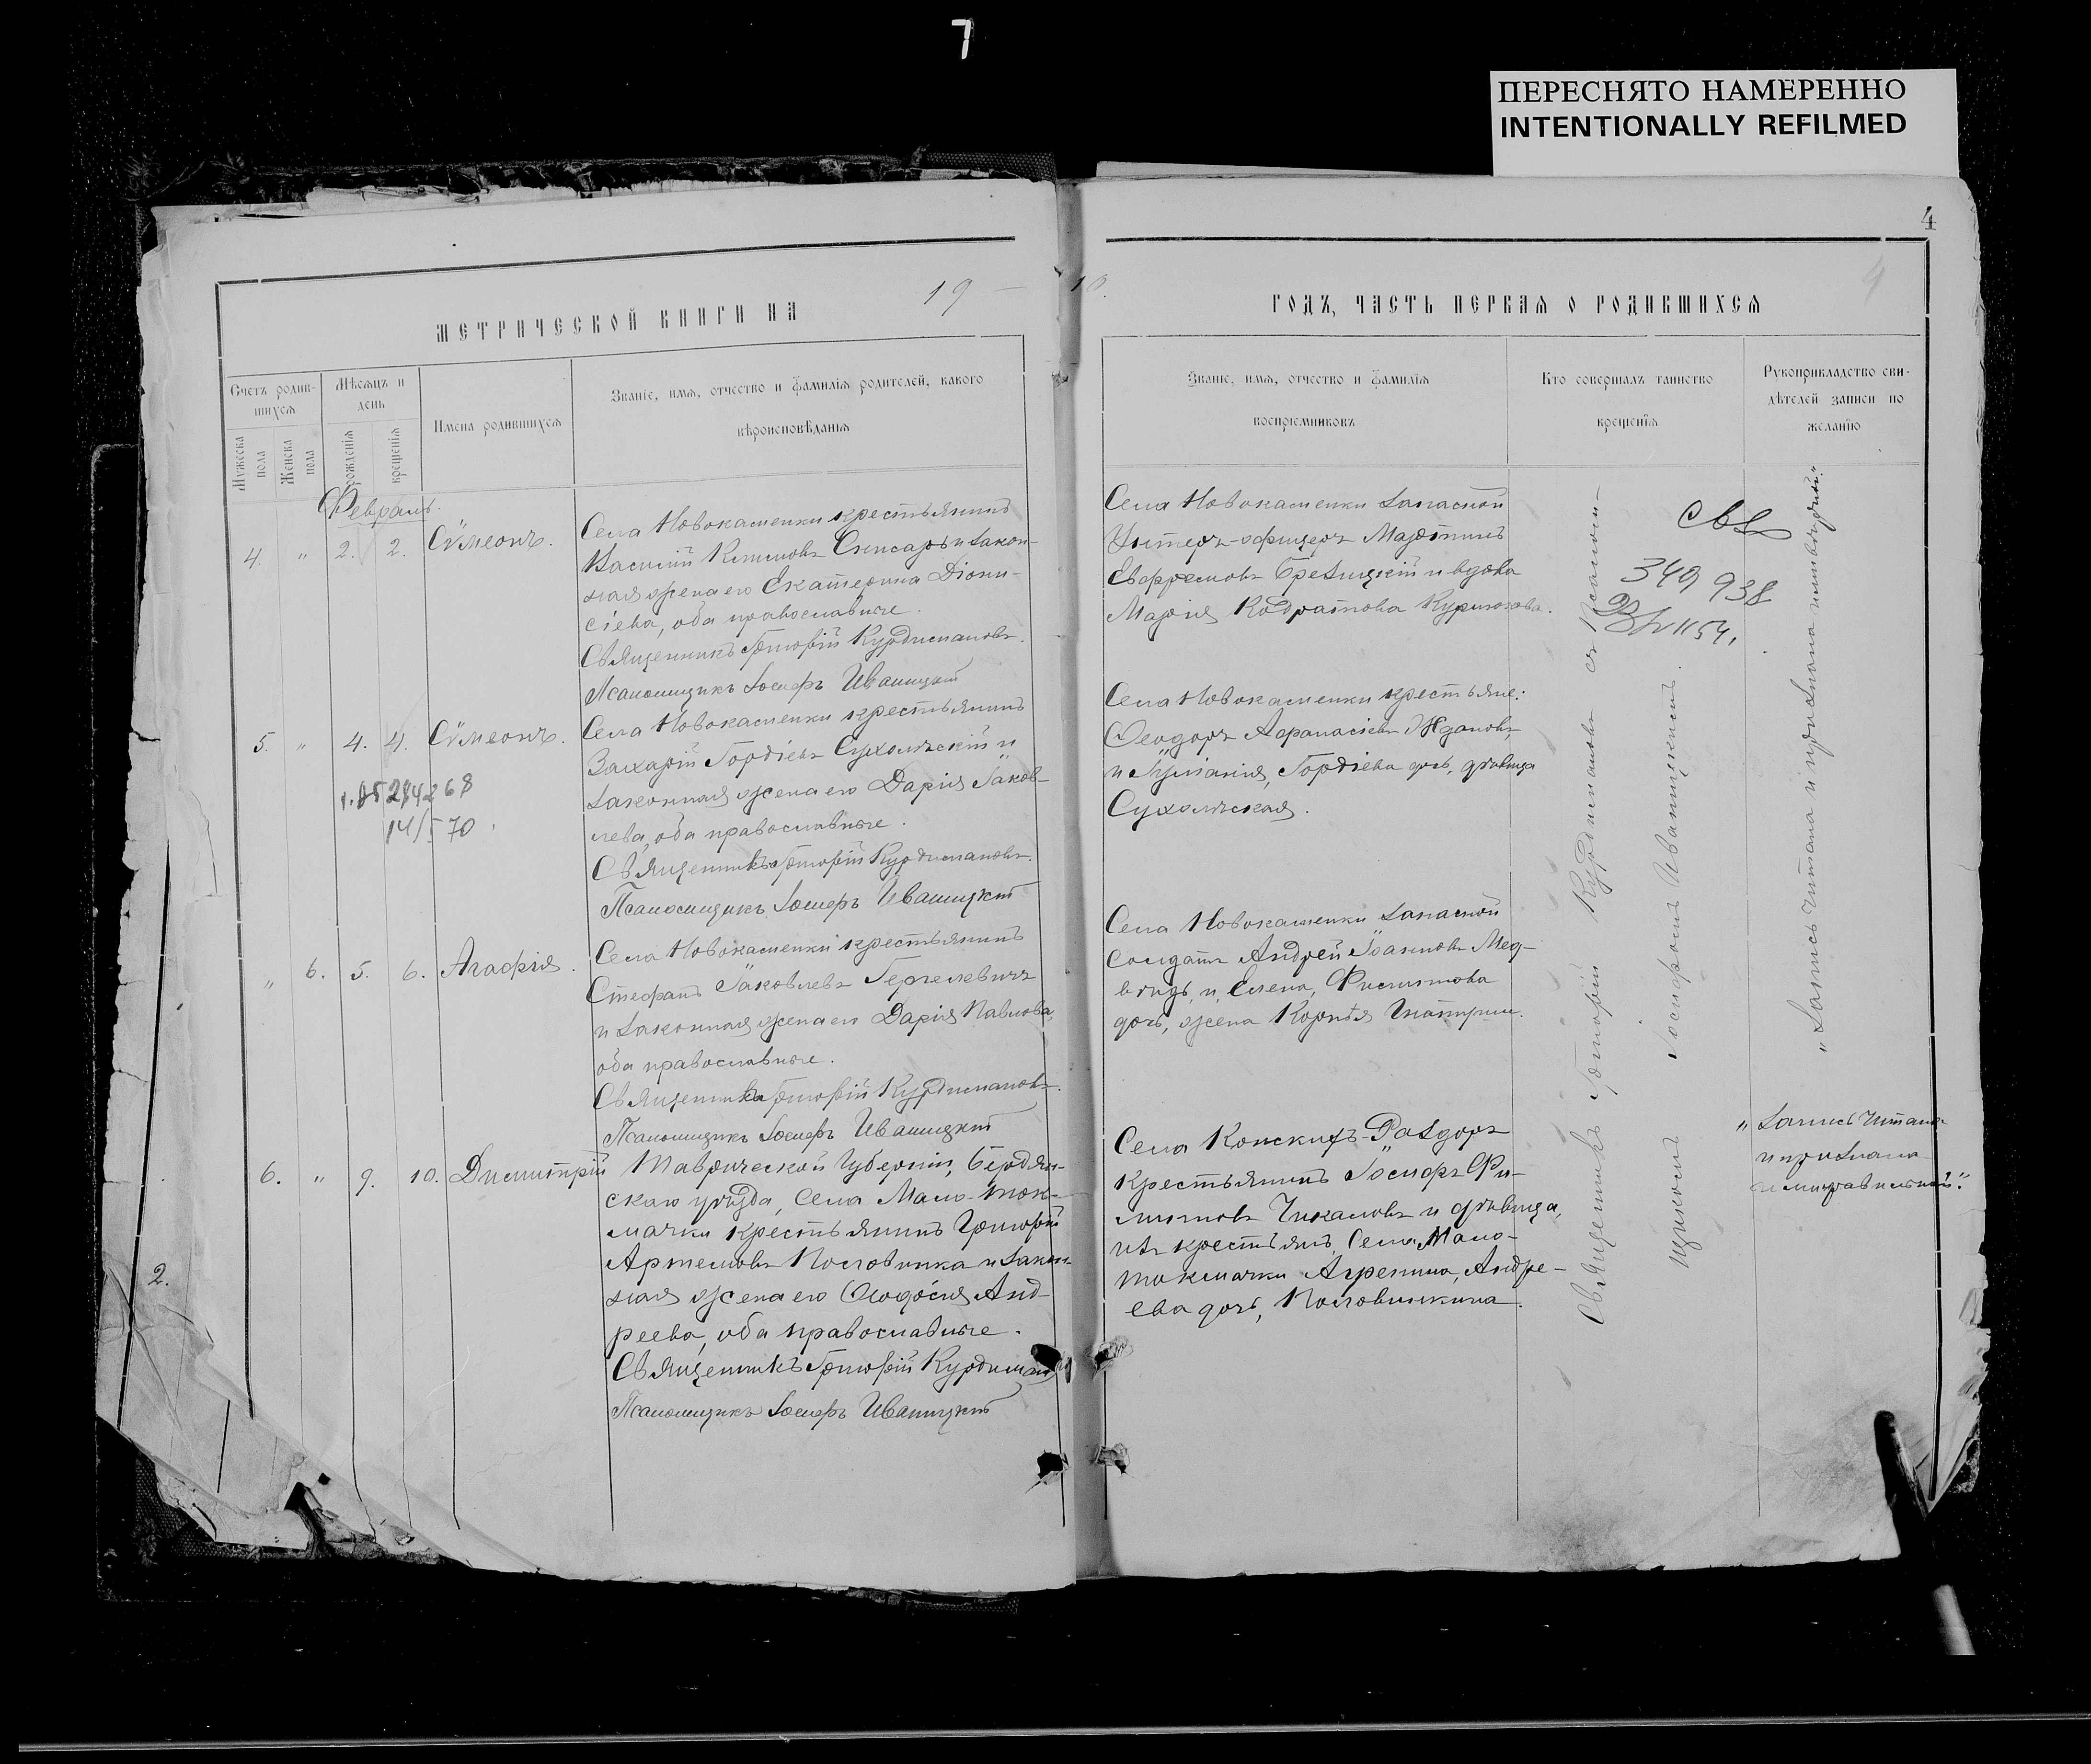 7
ПЕРЕСНЯТО НАМЕРЕННО
INTENTIONALLY REFILMED
4
4
МЕТРИЧЕСКОЙ КНИГИ НА 19
10.
ГОДЪ, ЧАСТЬ ПЕРВАЯ О РОДИВШИХСЯ
Счетъ родив-
шихся
Мужеска
пола
Женска
пола
Мѣсяцъ и
день
рожденія
крещенія
Имена родившихся
Званіе, имя, отчество и фамилія родителей, какого
вѣроисповѣданія
Званіе, имя, отчество и фамилія
воспріемниковъ
Кто совершалъ таинство
крещенія
Рукоприкладство сви-
дѣтелей записи по
желанію
Февраль.
4. " 2. 2. Сѵмеонъ.
Села Новокаменки крестьянинъ
Василій Климовъ Слисарь и закон-
ная жена его Екатерина Діони-
сіева, оба православные.
Священникъ Григорій Курдимановъ.
Псаломщикъ Іосифъ Иваницкій
Села Новокаменки запасной
Унтеръ-офицеръ Мартинъ
Евфремовъ Брезицкій и вдова
Марія Кодратова
5. " 4. 4. Сѵмеонъ.
Села Новокаменки крестьянинъ
Захарій Гордіевъ и
законная жена его Дарія Іаков-
лева, оба православные.
Священникъ Григорій Курдимановъ.
Псаломщикъ Іосифъ Иваницкій
14/5 70
Села Новокаменки крестьяне:
Ѳеодоръ Афанасіевъ Ждановъ
и Іуліанія, Гордіева дочь, дѣвица
" 6. 5. 6. Агафія.
Села Новокаменки крестьянинъ
Стефанъ Іаковлевъ Гергелевичъ
и законная жена его Дарія Павлова,
оба православные.
Священникъ Григорій Курдимановъ.
Псаломщикъ Іосифъ Иваницкій
Села Новокаменки запасной
солдатъ Андрей Іоакимовъ Мед-
вѣдь, и Елена, Филиппова
дочь, жена Корнѣя
6. " 9. 10. Димитрій
Таврической Губерніи, Бердян-
скаго уѣзда, Села Мало-Ток-
мачки крестьянинъ Григорій
Артемовъ Половинка и закон-
ная жена его Ѳеодосія Анд-
реева, оба православные.
Священникъ Григорій Курдиман
Псаломщикъ Іосифъ Иваницкій
Села Конскихъ-Раздоръ
Крестьянинъ Іосифъ Фи-
липповъ Чикаловъ и дѣвица,
изъ крестьянъ Села Мало-
токмачки Агрепина, Андре-
ева дочь, Половинкина.
2.
Священникъ Григорій Курдимановъ съ Псалом-
щикомъ Іосифомъ Иваницкимъ.
349 938
"Запись читана и признана
"Запись читана
и признана